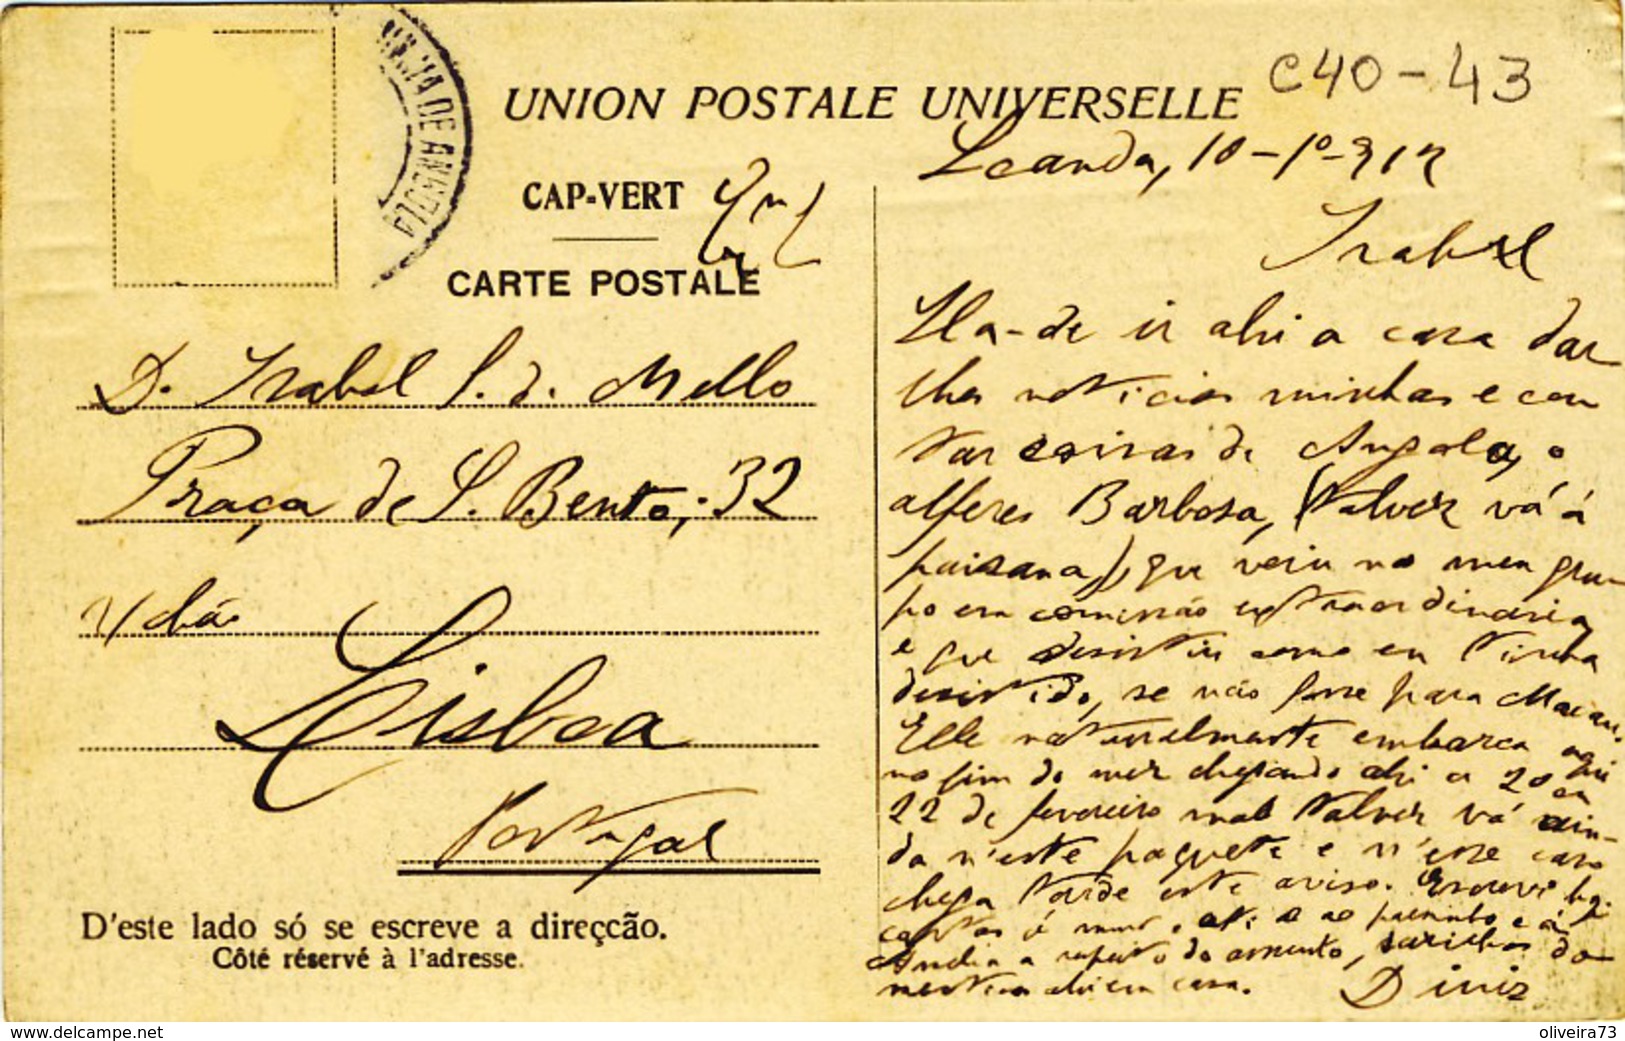 C40-43
UNION POSTALE UNIVERSELLE
PROVINCIA DE ANGOLA
CAP-VERT
CARTE POSTALE
D. Isabel S. d. Mello
Praça de S. Bento, 32
Lisboa
Portugal
D'este lado só se escreve a direcção.
Côté réservé à l'adresse.
Loanda, 10-1º-912
Isabel
Ha-de ir ahi a casa dar
lhes noticias minhas e con
tar coisas de Angola, o
alferes Barbosa, (talvez vá á
paisana), que veiu no meu gru-
po em comissão extraordinaria
e que desistiu como eu tinha
desistido, se não fosse para Macau.
Elle naturalmente embarca aqui
no fim do mez chegando ahi a 20 ou
22 de fevereiro mas talvez vá ain-
da n'este paquete e n'esse caso
chega tarde este aviso. Escrevi
cartas á
a respeito do assunto,
ahi em casa. Diniz
delcampe.net
oliveira73